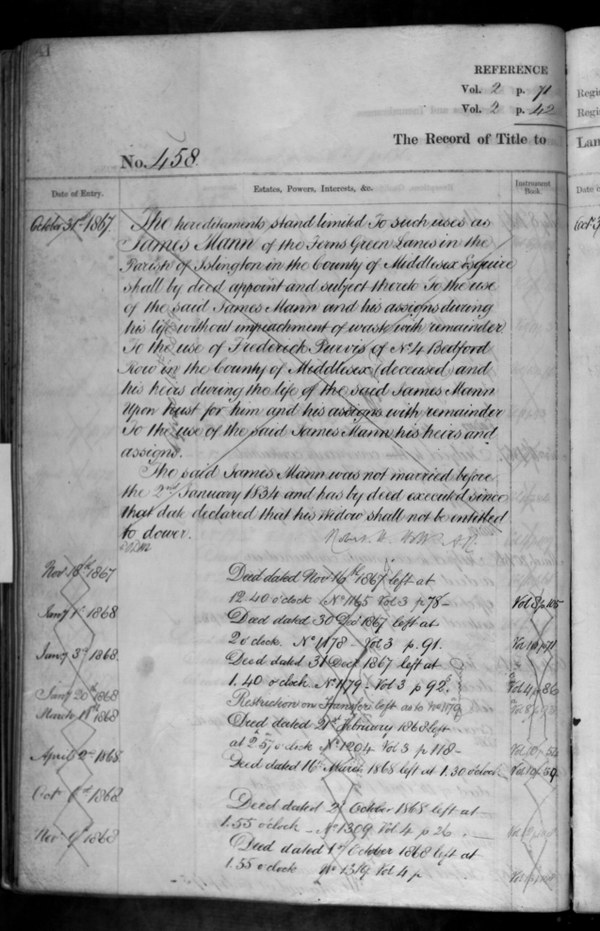 REFERENCE
Vol. 2 p. 71
Vol. 2 p. 42
The Record of Title to
No. 458
Lan
Regi
Regi
Date of Entry.
Estates, Powers, Interests, &c.
Instrument Book.
Date o
October 31st 1867
The hereditaments stand limited To such uses as
James Mann of the Ferns Green Lanes in the
Parish of Islington in the County of Middlesex Esquire
shall by deed appoint and subject thereto To the use
of the said James Mann and his assigns during
his life without impeachment of waste with remainder
To the use of Frederick Purvis of No. 4 Bedford
Row in the County of Middlesex (deceased) and
his heirs during the life of the said James Mann
Upon trust for him and his assigns with remainder
To the use of the said James Mann his heirs and
assigns.
The said James Mann was not married before
the 2nd January 1834 and has by deed executed since
that date declared that his widow shall not be entitled
to dower.
Nov 18th 1867
Deed dated Nov 16th 1867 left at
12.40 o'clock No 1165 Vol 3 p 78
Vol 8 p 105
Jany 1st 1868
Deed dated 30 Decr 1867 left at
2 o'clock No 1178 Vol 3 p. 91.
Jany 3rd 1868
Deed dated 31 Decr 1867 left at
1.40 o'clock No 1179 Vol 3 p 92.
Vol 4 p 86
Jany 20th 1868
Restriction on Transfers left as to No 1179
March 11th 1868
Deed dated 21st February 1868 left
at 2.57 o'clock No 1204 Vol 3 p 118
April 2nd 1868
Deed dated 16th March 1868 left at 1.30 o'clock
Oct 1868
Deed dated 2 October 1868 left at
1.55 o'clock No 1309 Vol 4 p 26.
Nov 1868
Deed dated 1st October 1868 left at
1.55 o'clock No 1319 Vol 4 p